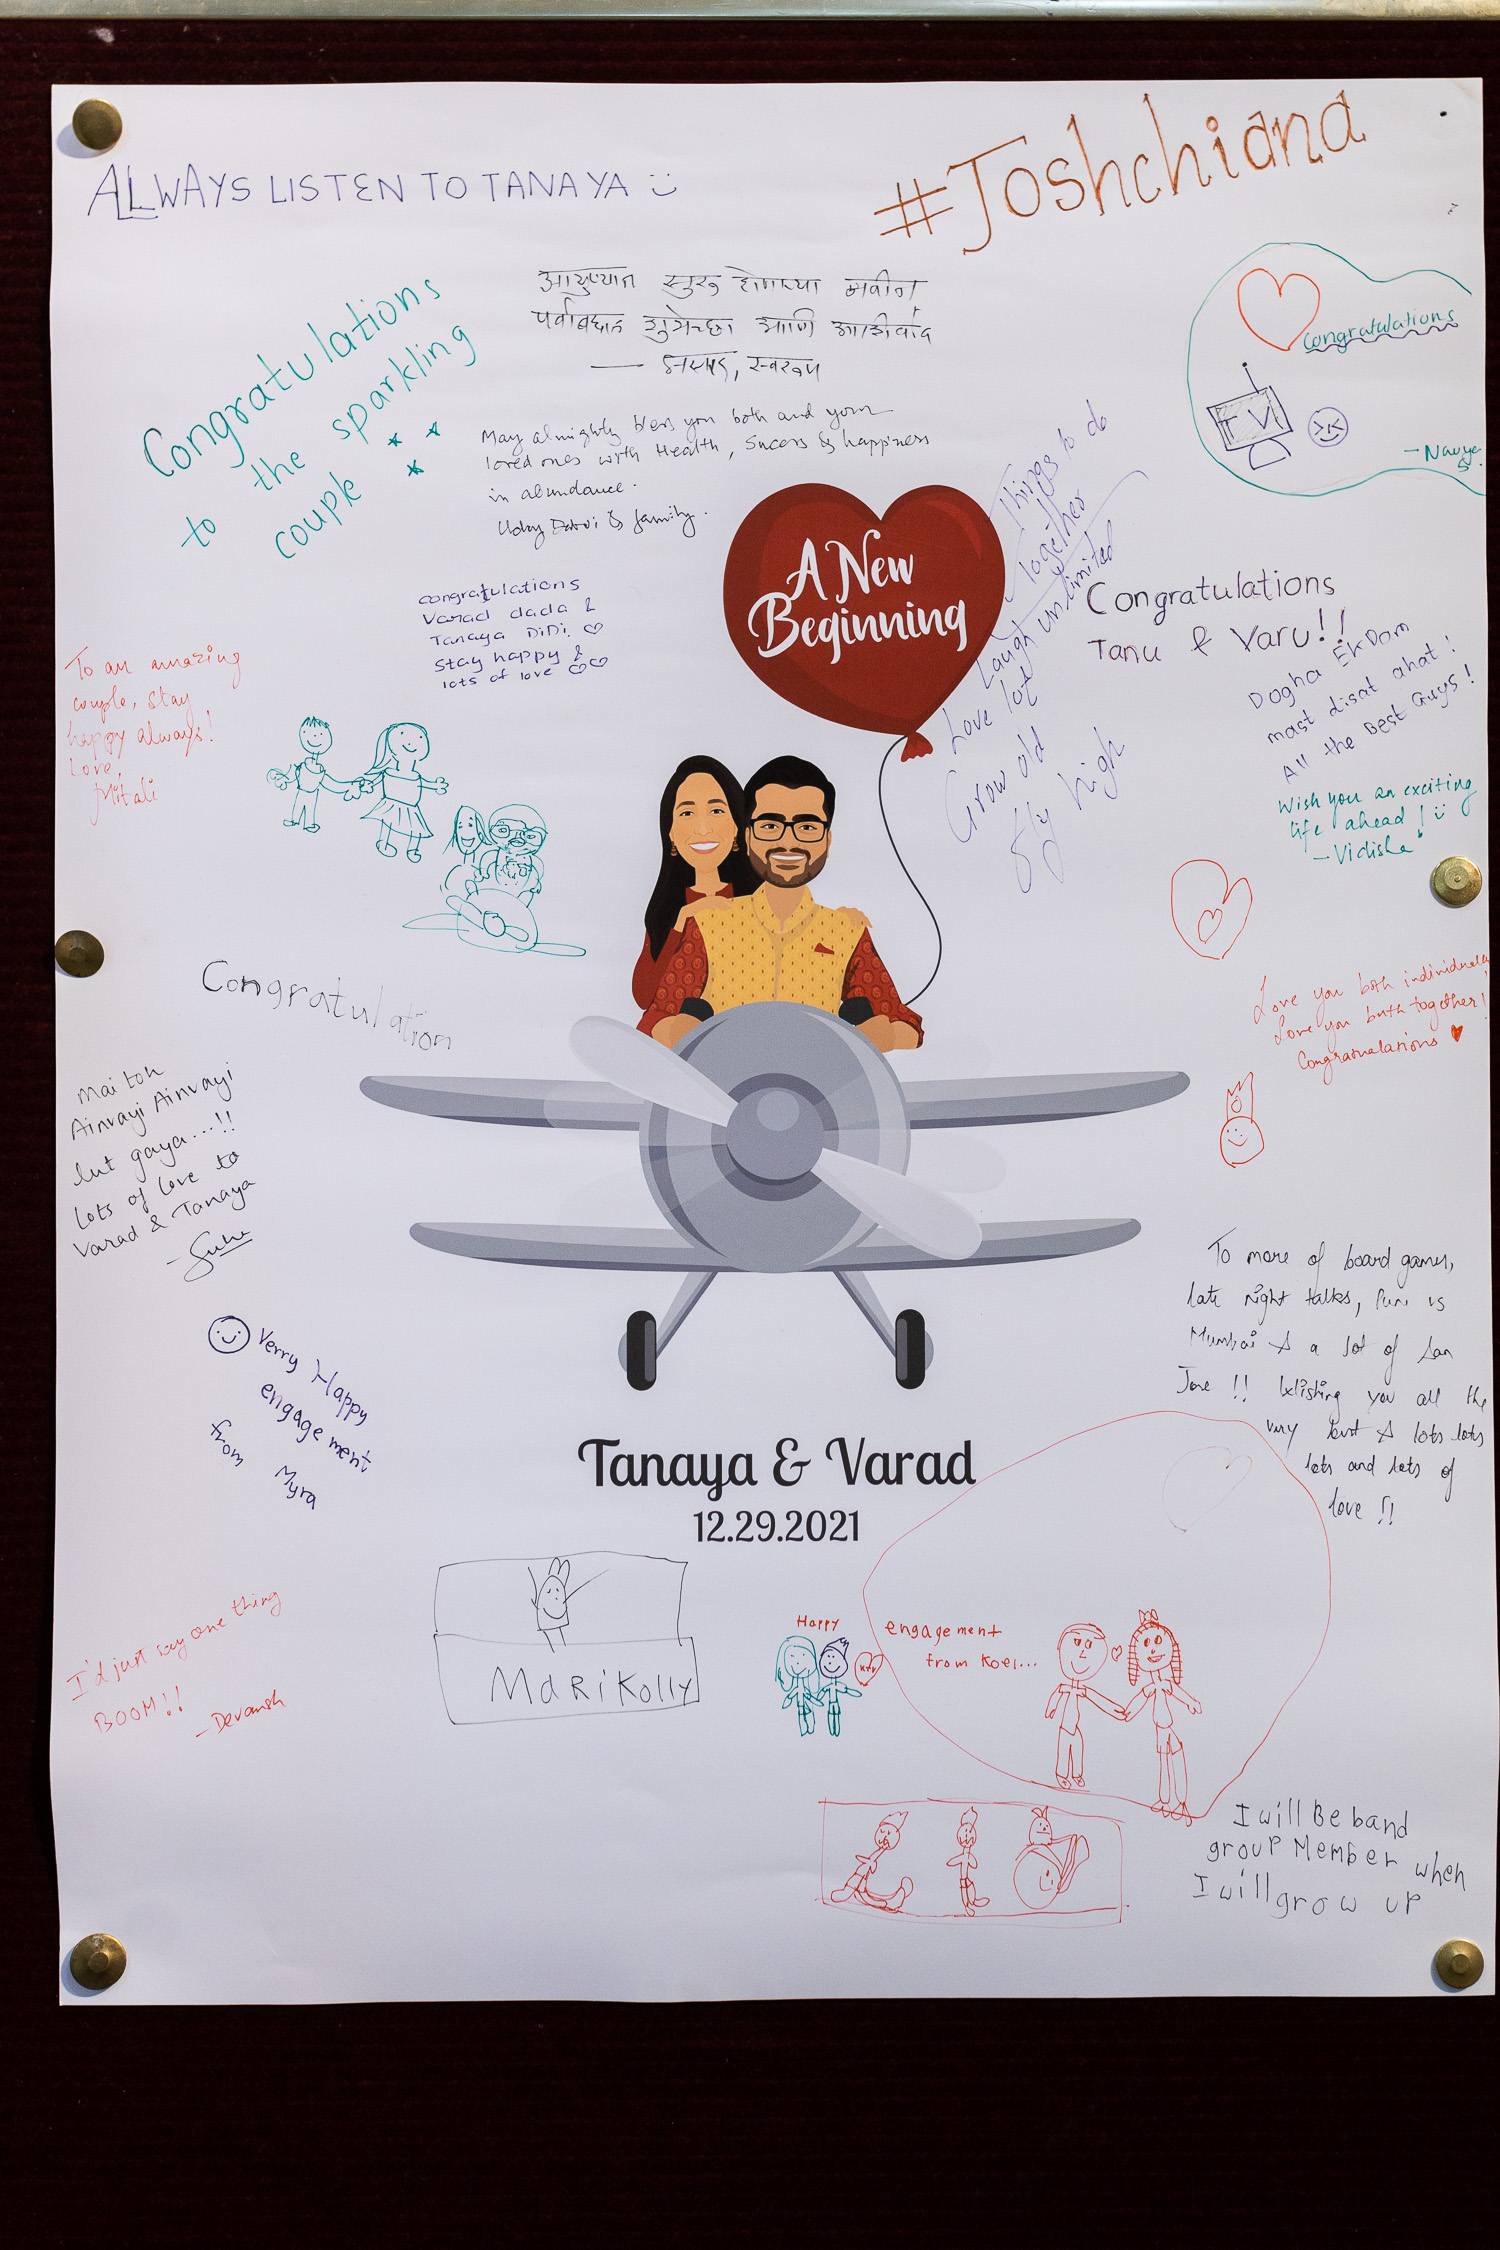 ALWAYS LISTEN TO TANAYA
#Joshchiana
आयुष्यात सुरू होणाऱ्या नवीन
पर्वाबद्दल शुभेच्छा आणि आशीर्वाद
स्वरूप
Congratulations
to the sparkling
couple
Congratulations
TV
- Navya
May almighty bless you both and your
loved ones with Health, Success & happiness
in abundance.
Uday & family.
Things to do
Together
Laugh unlimited
Love lot
Grow old
fly high
A New
Beginning
congratulations
Varad dada &
Tanaya DiDi
stay happy &
lots of love
Congratulations
Tanu & Varu!!
Dogha EkDom
mast disat ahat!
All the Best Guys!
Wish you an exciting
life ahead!
- Vidisha
To an amazing
couple, stay
happy always!
Love,
Mitali
Congratulation
Love you both individually
Love you both together!
Congratualations
Mai toh
Ainvayi Ainvayi
lut gaya...!!
lots of love to
Varad & Tanaya
To more of board games,
late night talks, Pune vs
Mumbai & a lot of San
Jose !! Wishing you all the
very best & lots lots
lots and lots of
love !!
Verry Happy
engagement
from Myra
Tanaya & Varad
12.29.2021
I'd just say one thing
BOOM!!
- Devansh
MaRiKolly
Happy
engagement
from Koei...
I will Be band
group Member when
I will grow up